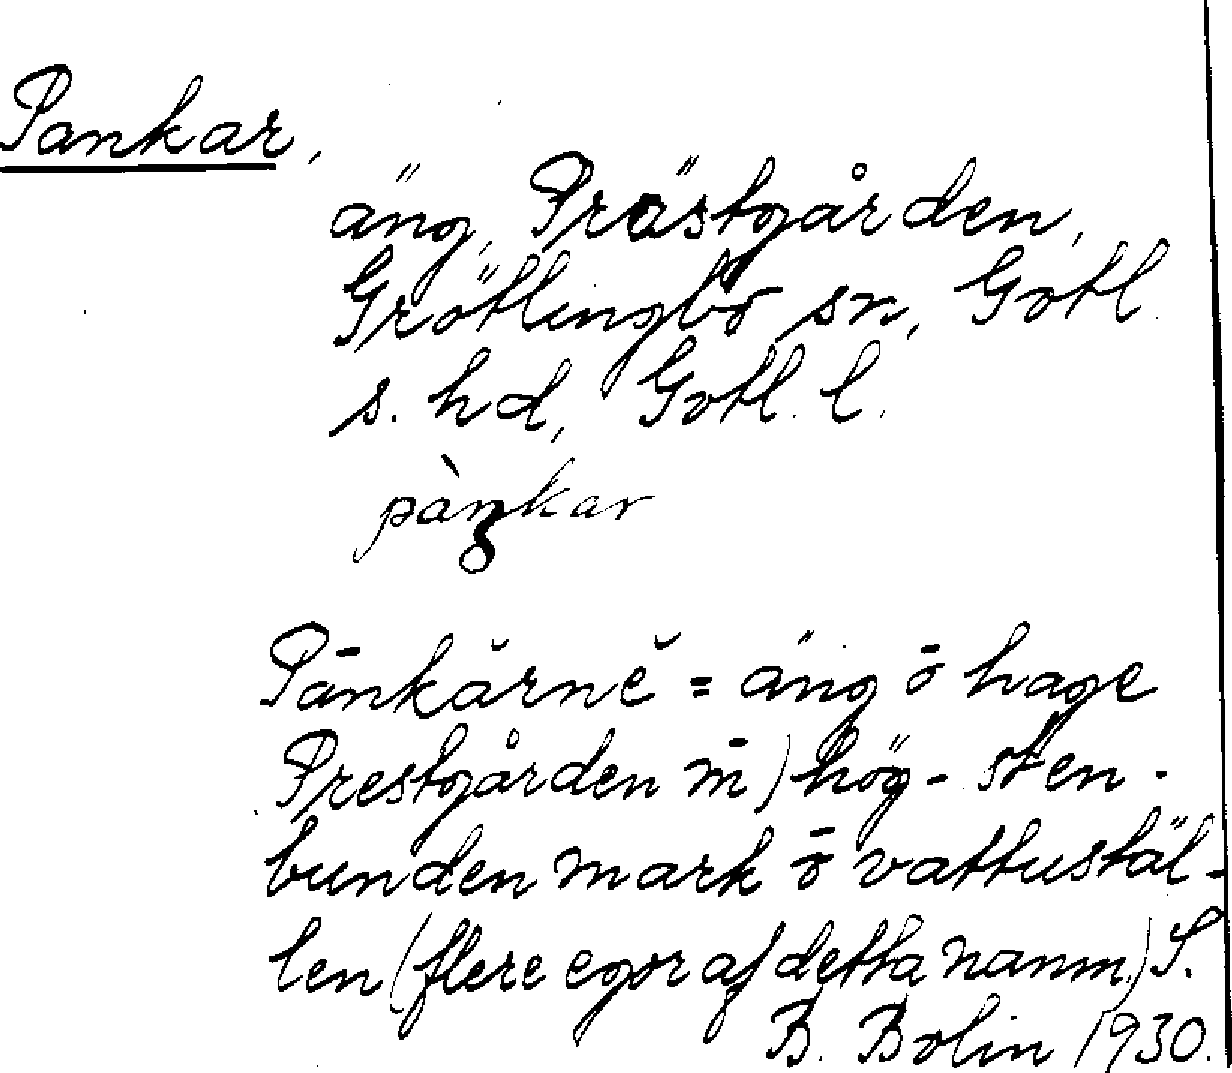 Pankar,
äng, Prästgården,
Grötlingbo sn, Gotl.
s. hd, Gotl. l.
pàŋkar
Pānkărnĕ = äng ō hage
Prestgården m̄) hög- sten-
bunden mark ō vattustäl-
len (flere egor af detta namn.) S.
B. Bolin 1930.